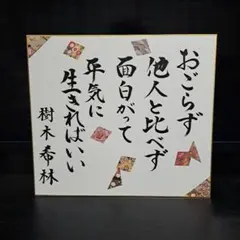 おごらず
他人と比べず
面白がって
平気に
生きればいい
樹木希林